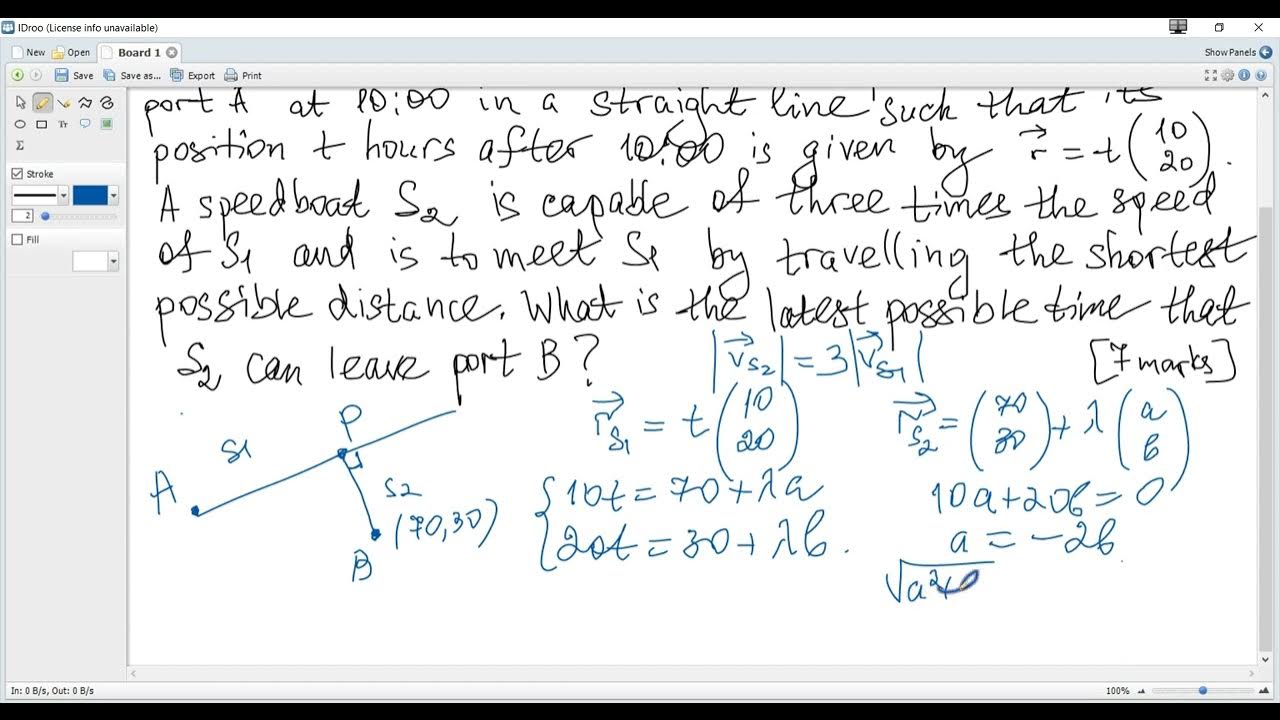 IDroo (License info unavailable)
New Open Board 1 Show Panels
Save Save as... Export Print
port A at 10:00 in a straight line such that its
position t hours after 10:00 is given by r⃗ = t(10 20).
A speedboat S₂ is capable of three times the speed
of S₁ and is to meet S₁ by travelling the shortest
possible distance. What is the latest possible time that
S₂ can leave port B? [7 marks]
|v⃗_S₂| = 3|v⃗_S₁|
r⃗_S₁ = t(10 20) r⃗_S₂ = (70 30) + λ(a b)
P
S1
A
S2
(70,30)
B
{10t = 70 + λa
20t = 30 + λb.
10a + 20b = 0
a = -2b
√a²+
Tr
Σ
Stroke
2
Fill
In: 0 B/s, Out: 0 B/s 100%